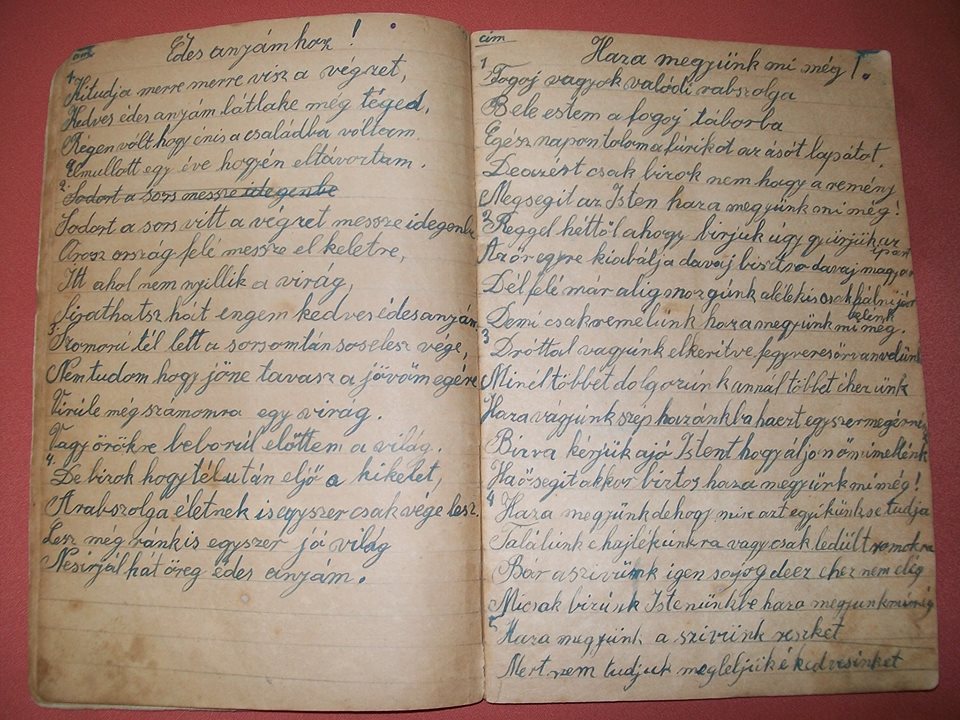 cim
Edes anyámhoz!
1
Kitudja merre merre visz a végzet,
Kedves édes anyám látlake még téged,
Régen vólt hogy énis a családba vóltam.
Elmullott egy éve hogyén eltávortam.
2.
Sodort a sors messze idegenbe
Sodort a sors vitt a végzet messze idegenbe
Orosz ország felé messze el keletre,
Itt ahol nem nyillik a virág,
Sirathatsz hát engem kedves édes anyám
3.
Szomorú tél lett a sorsomtán soselesz vége,
Nemtudom hogy jöne tavasz a jövöm egére
Virúle még szamomra egy virag.
Vagy örökre beborúl elöttem a világ.
4.
De birok hogy tél után eljö a kikelet,
A rabszolga életnek isegyszer csak vége lesz.
Lesz még ránkis egyszer jó világ
Nesirjál hát öreg édes anyám.
cim
Haza megyünk mi még!
1
Fogoj vagyok valódi rabszolga
Bele estem a fogoj táborba
Egész napon tolom a furikot az ásót lapátot,
Deazést csak birok nem hogy a remény
Megsegit az Isten haza megyünk mi még!
2
Reggel héttöl ahogy birjuk úgy gyürjük az ipart
Az ör egyre kiabálja davaj bisztro davaj magyar
Dél felé már alig mozgúnk a lélekis csak hálni jár belénk
Demi csak remelünk haza megyünk mi még.
3
Dróttal vagyúnk elkeritve fegyveres örvan velünk
Minél többet dolgozúnk annál többet éhezünk
Haza vágyúnk szép hazánkba haezt egyszer megérnénk
Bizva kérjük a jó Istent hogy áljon ö mimellénk
Ha ö segit akkor biztos haza megyünk mi még!
4
Haza megyünk dehogy mire azt egyikünk se tudja
Találunk e hajlékunkra vagy csak ledült romokra
Bár a szivünk igen sajog deez ehez nem elég
Micsak bizúnk Istenünkbe haza megyunk mi még
5
Haza megyünk a szivünk reszket
Mert nem tudjuk megleljük é kedvesinket